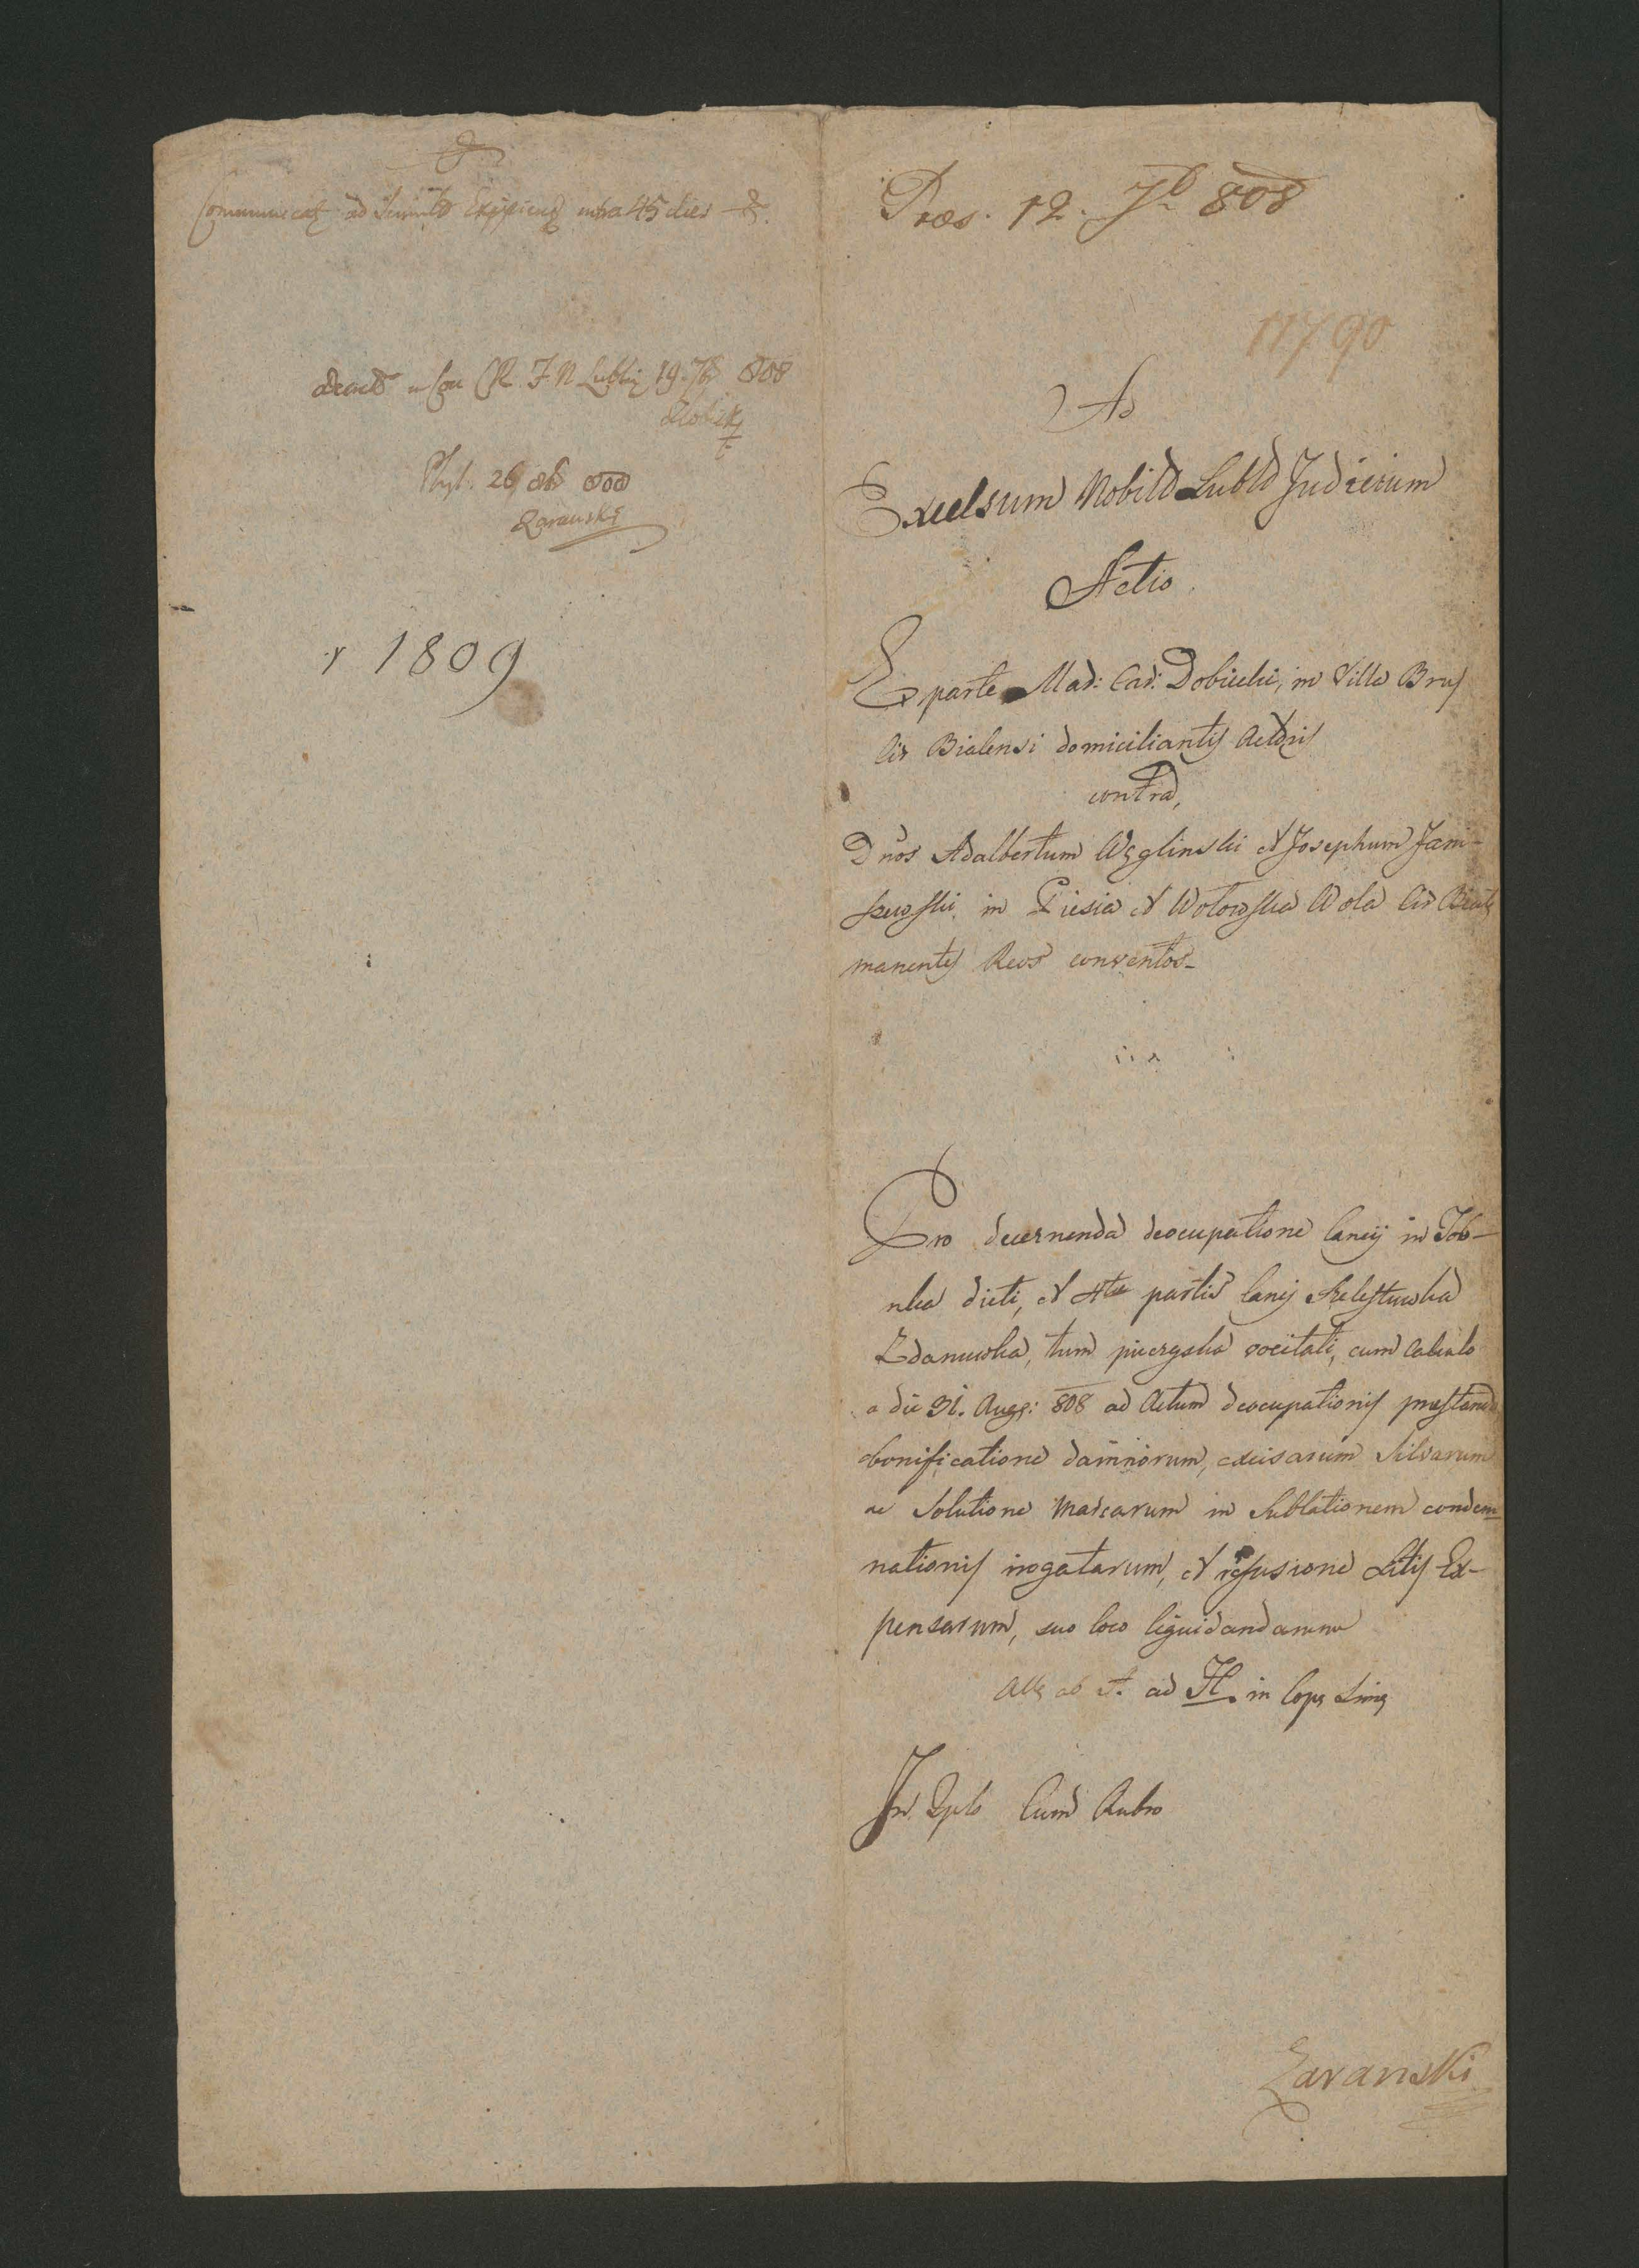 Communicat ad intra 45 dies
in Con CR F N Lublin 19. 7br 808
26 8br 808
Zaranski
r 1809
Præs. 12. 7b 808
11790
Ad
Excelsum Nobild Lubld Judicium
Actio
Ex parte Mad: Cad: Dobiecki, in Villa Brus
Cir Bialensi domiciliantis Actoris
contra,
Dnos Adalbertum Węglinski et Josephum Jani-
szewski in Piesia et Wołoska Wola Cir
manentes Reos conventos_
Pro decernenda deocupatione lanei in Job-
nka dicti, et 4tæ partis lanei
Zdanuwka, tum vocitati, cum calculo
a die 31. Aug: 808 ad Actum deocupationis præstando
bonificatione damnorum, excisarum Silvarum
ac Solutione Marcarum in Sublationem condem-
nationis irrogatarum, et refusione Litis Ex-
pensarum, suo loco liquidandarum
Alle ab A. ad H. in
In Dplo Cum Rubro
Zaranski